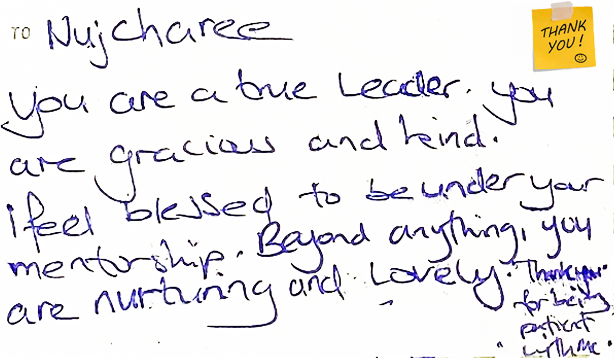 TO Nujcharee
THANK
YOU!
you are a true Leader. you
are gracious and kind.
i feel blessed to be under your
mentorship. Beyond anything, you
are nurturing and Lovely.
Thank you
for being
patient
with me.